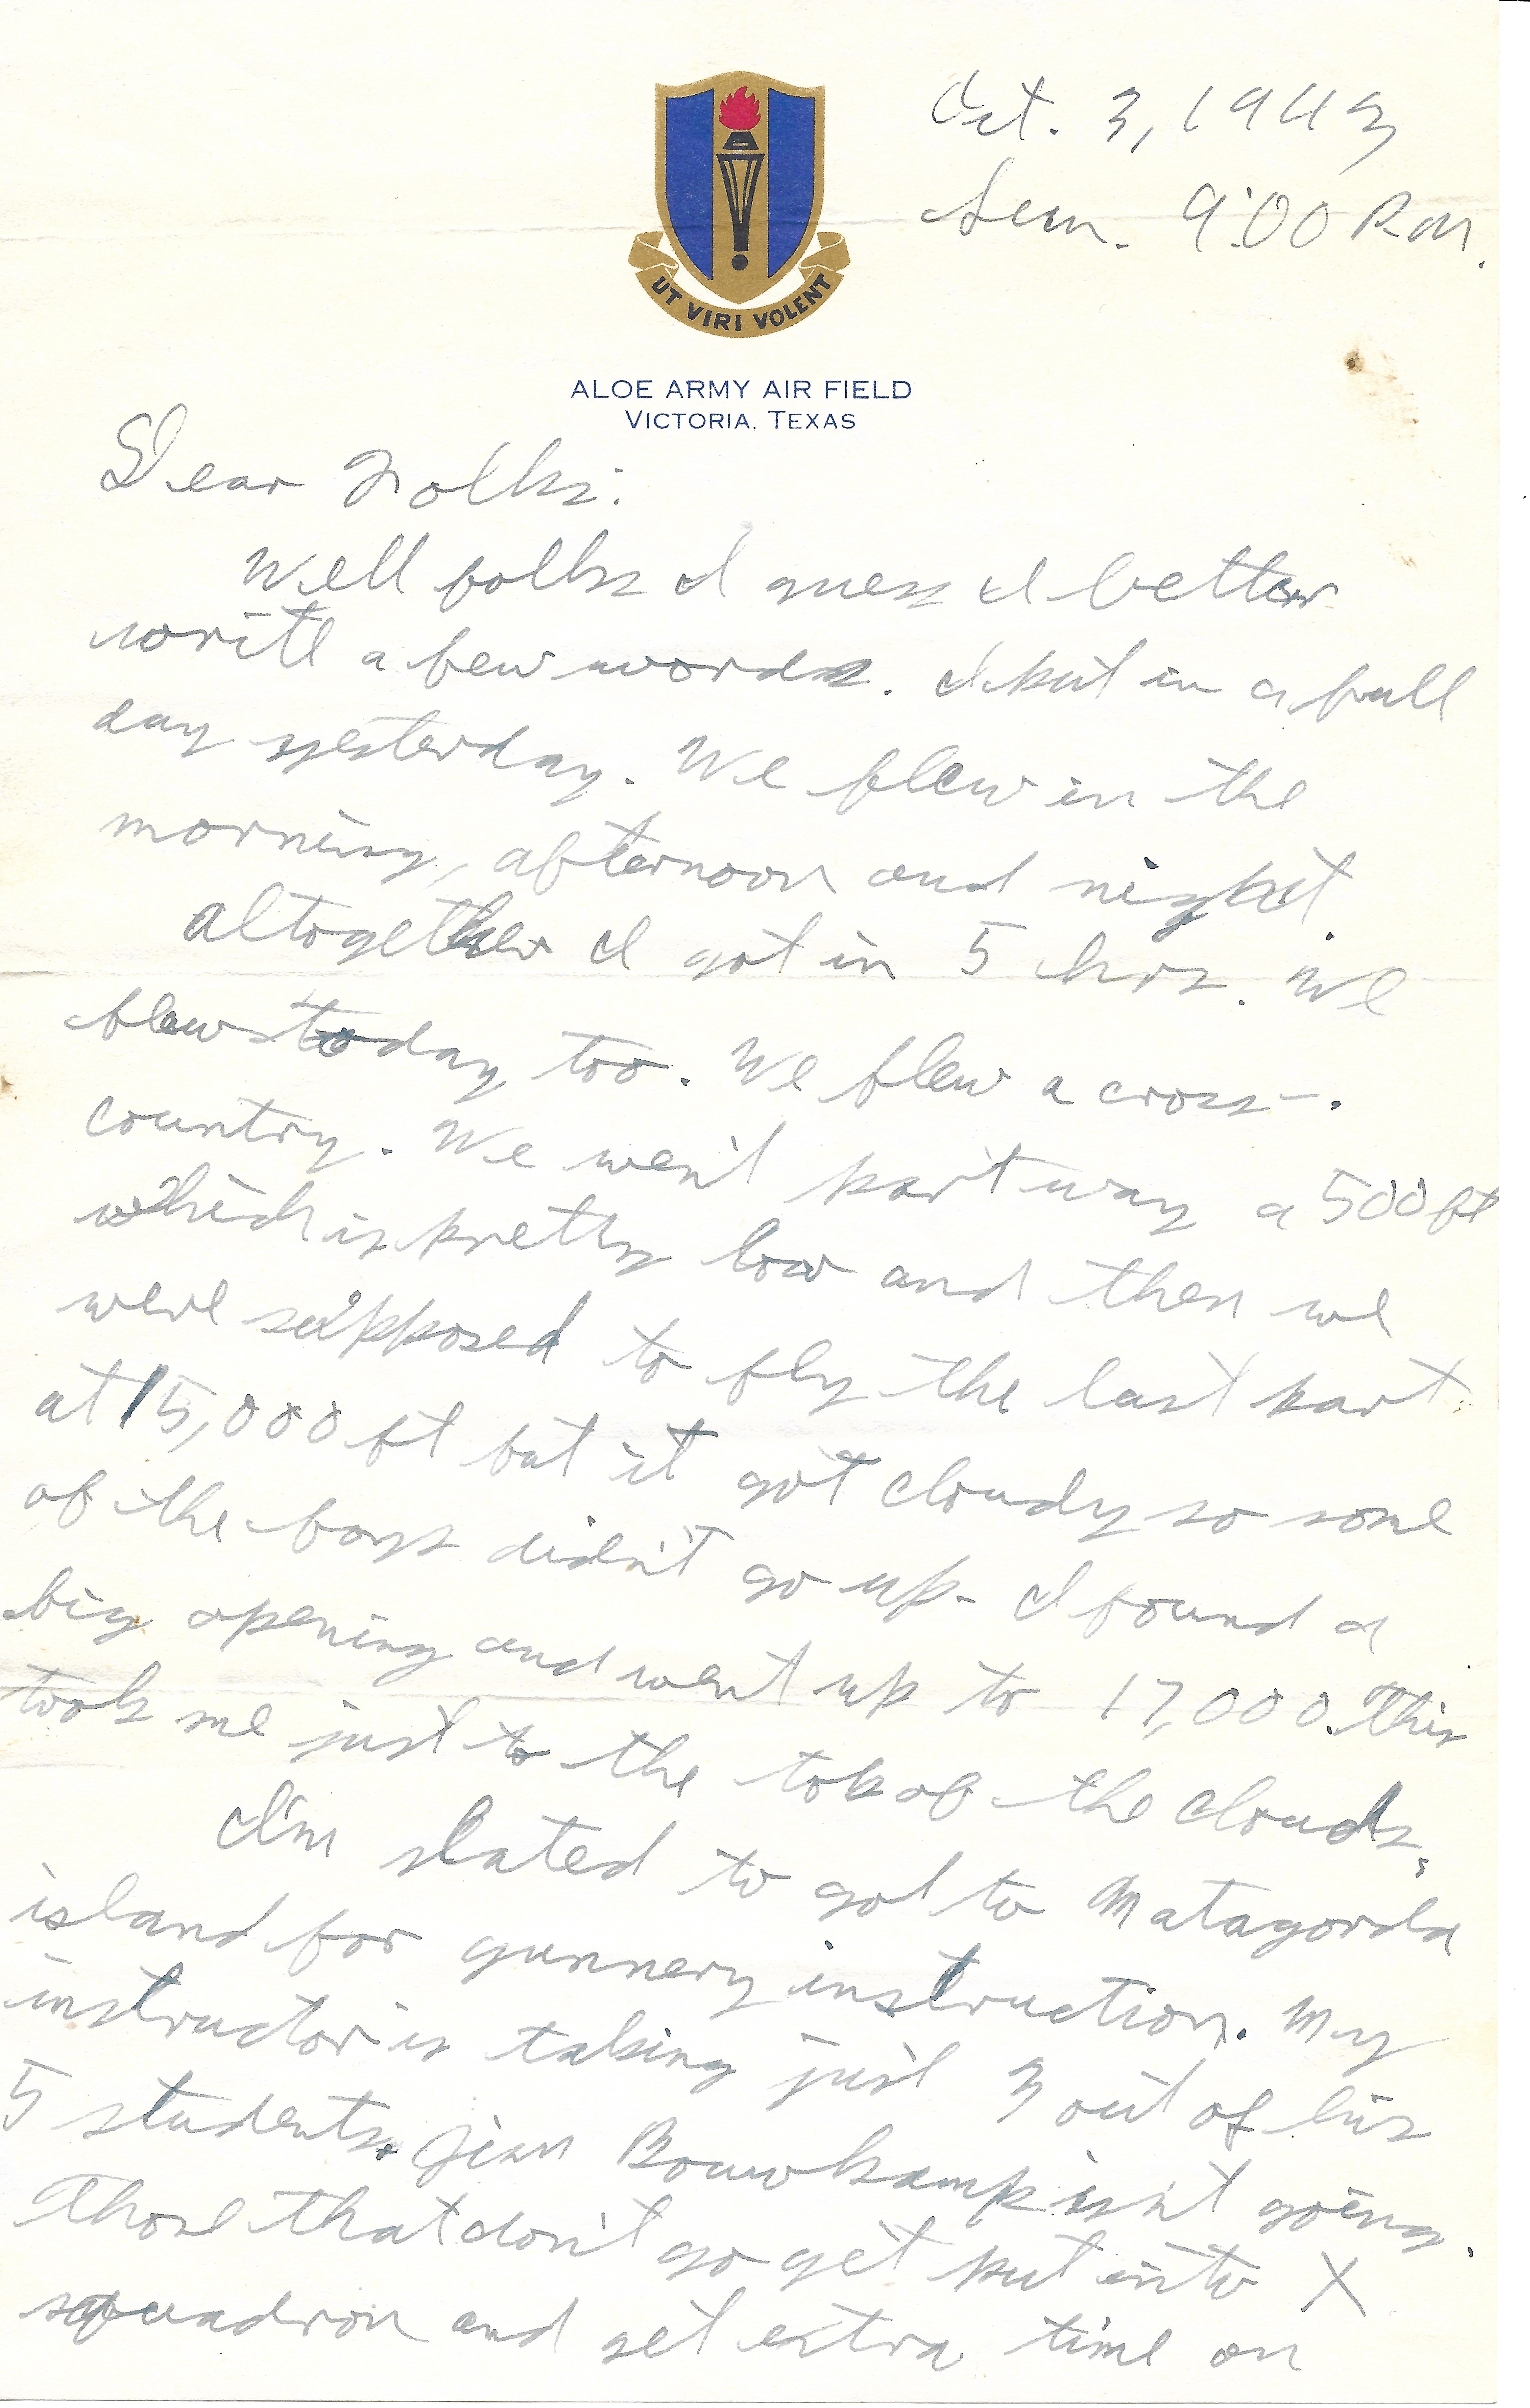 Oct. 3, 1943
Sun. 9:00 P.M.
UT VIRI VOLENT
ALOE ARMY AIR FIELD
VICTORIA, TEXAS
Dear Folks:
Well folks I guess I better
write a few words. I put in a full
day yesterday. We flew in the
morning, afternoon and night.
Altogether I got in 5 hrs. We
flew today too. We flew a cross-
country. We went part way a 500 ft
which is pretty low and then we
were supposed to fly the last part
at 15,000 ft but it got cloudy so some
of the boys didn't go up. I found a
big opening and went up to 17,000. This
took me just to the top of the clouds.
I'm slated to go to Matagorda
island for gunnery instruction. My
instructor is taking just 3 out of his
5 students. Jim Bouwkamp isn't going.
Those that don't go get put into X
squadron and get extra time on